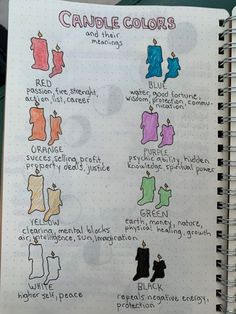 CANDLE COLORS
and their
meanings
RED
passion, fire, strenght,
action, list, career
BLUE
water, good fortune,
wisdom, protection, commu-
nication
ORANGE
succes, selling, profit,
property deals, justice
PURPLE
psychic ability, hidden
knowledge, spiritual power
YELLOW
clearing, mental blocks
air, intelligence, sun, imagination
GREEN
earth, money, nature,
physical healing, growth
WHITE
higher self, peace
BLACK
repeals negative energy,
protection